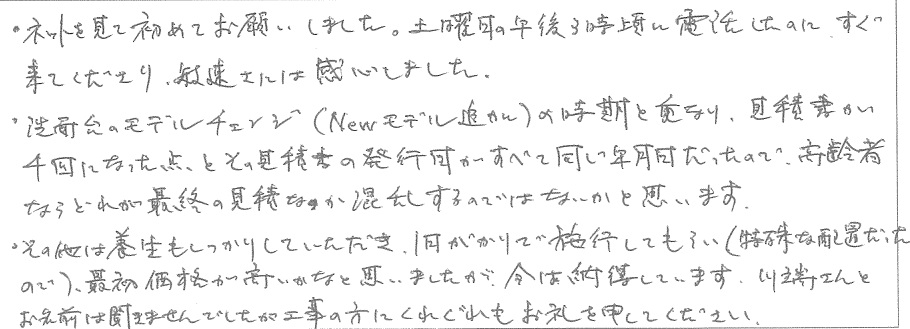 ・ネットを見て初めてお願いしました。土曜日の午後3時頃に電話したのに、すぐ
来てくださり、敏速さには感心しました。
・洗面台のモデルチェンジ(Newモデル追加)の時期と重なり、見積書が
4回になった点、とその見積書の発行日がすべて同じ年月日だったので、高齢者
ならどれが最終の見積なのか混乱するのではないかと思います。
・その他は養生もしっかりしていただき、1日がかりで施行してもらい(特殊な配置だった
ので)、最初価格が高いかなと思いましたが、今は納得しています。川端さんと
お名前は聞きませんでしたが工事の方にくれぐれもお礼を申してください。